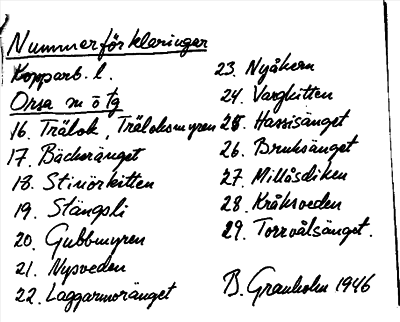 Nummerförklaringar
Kopparb. l.
Orsa sn ö tg
16. Trälok, Träloksmyren
17. Bäckeränget
18. Stinörkitten
19. Stängsli
20. Gubbmyren
21. Nysveden
22. Laggarmoränget
23. Nyåkern
24. Vargkitten
25. Hassisänget
26. Bruksänget
27. Millåsdiken
28. Kråksveden
29. Torrvålsänget.
B. Granholm 1946